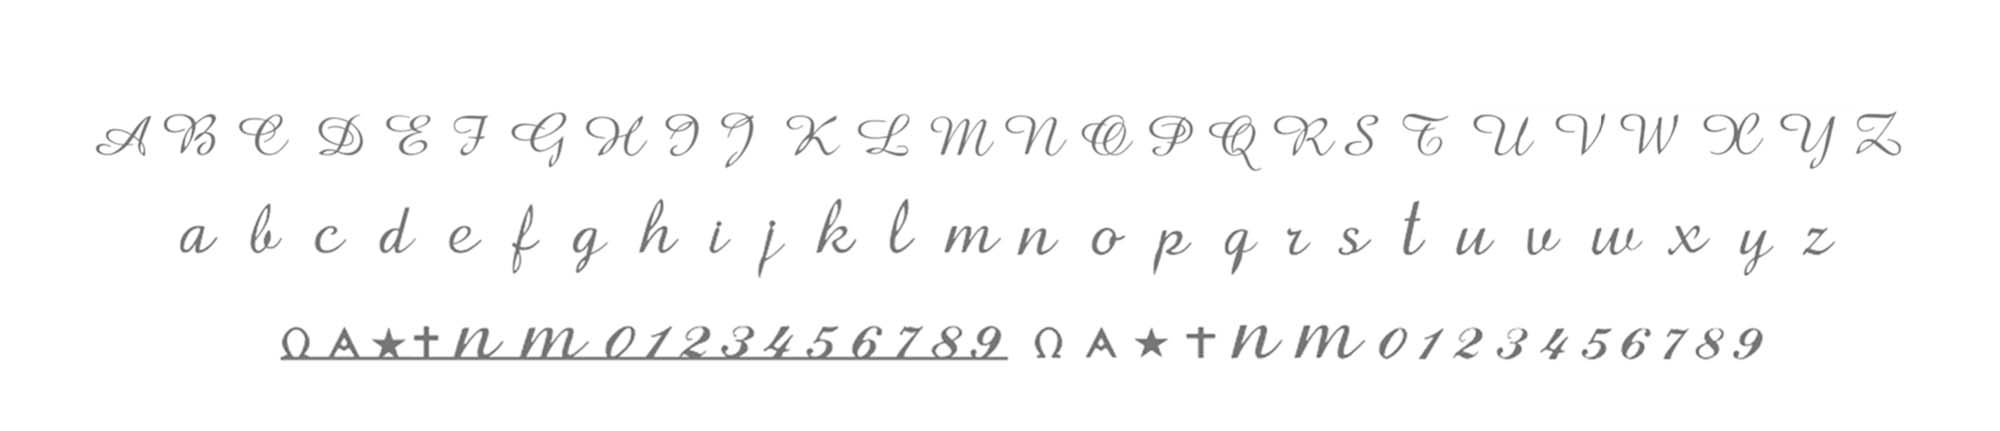 A B C D E F G H I J K L M N O P Q R S T U V W X Y Z
a b c d e f g h i j k l m n o p q r s t u v w x y z
Ω A ★ ✝ n m 0 1 2 3 4 5 6 7 8 9 Ω A ★ ✝ n m 0 1 2 3 4 5 6 7 8 9